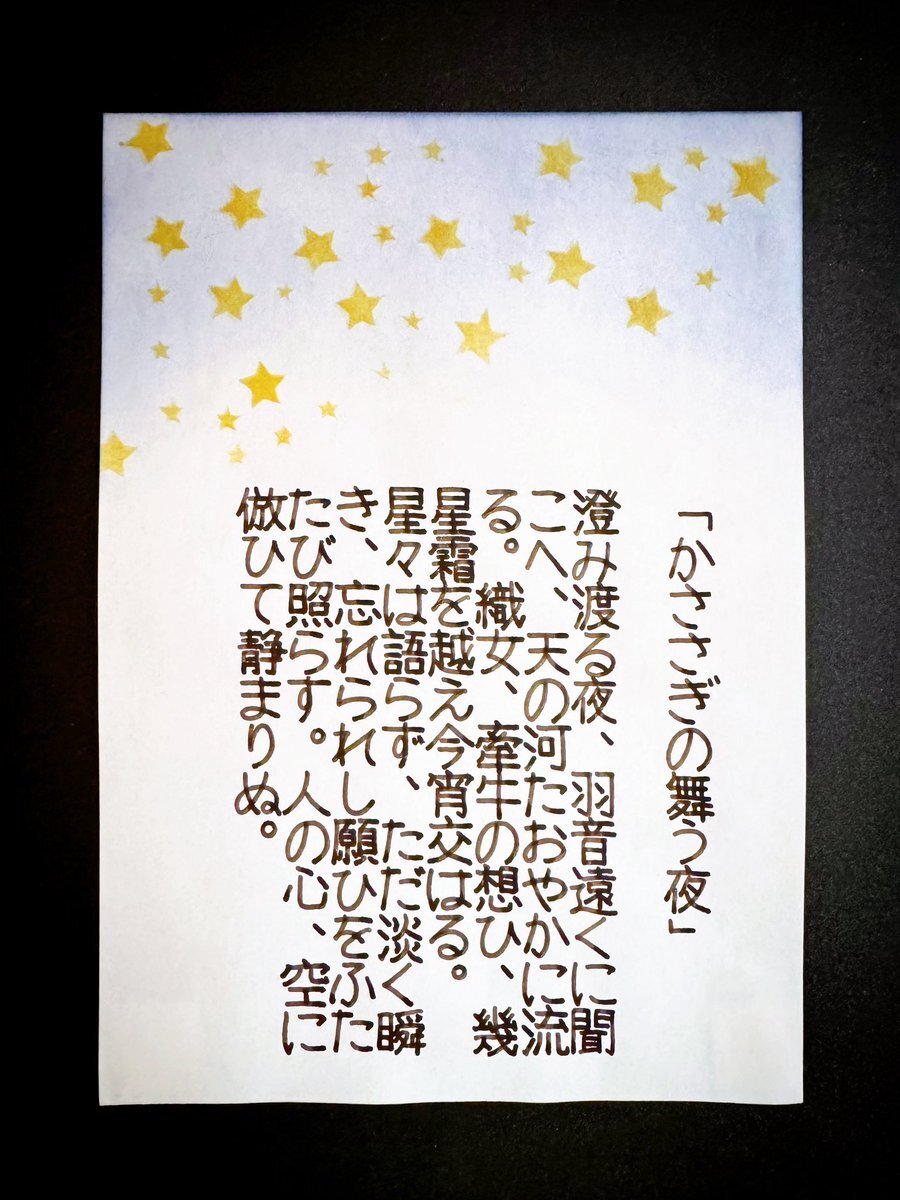 「かささぎの舞う夜」
澄み渡る夜、羽音遠くに聞
こへ、天の河たおやかに流
る。織女、牽牛の想ひ、幾
星霜を越え今宵交はる。
星々は語らず、ただ淡く瞬
き、忘れられし願ひをふた
たび照らす。人の心、空に
倣ひて静まりぬ。